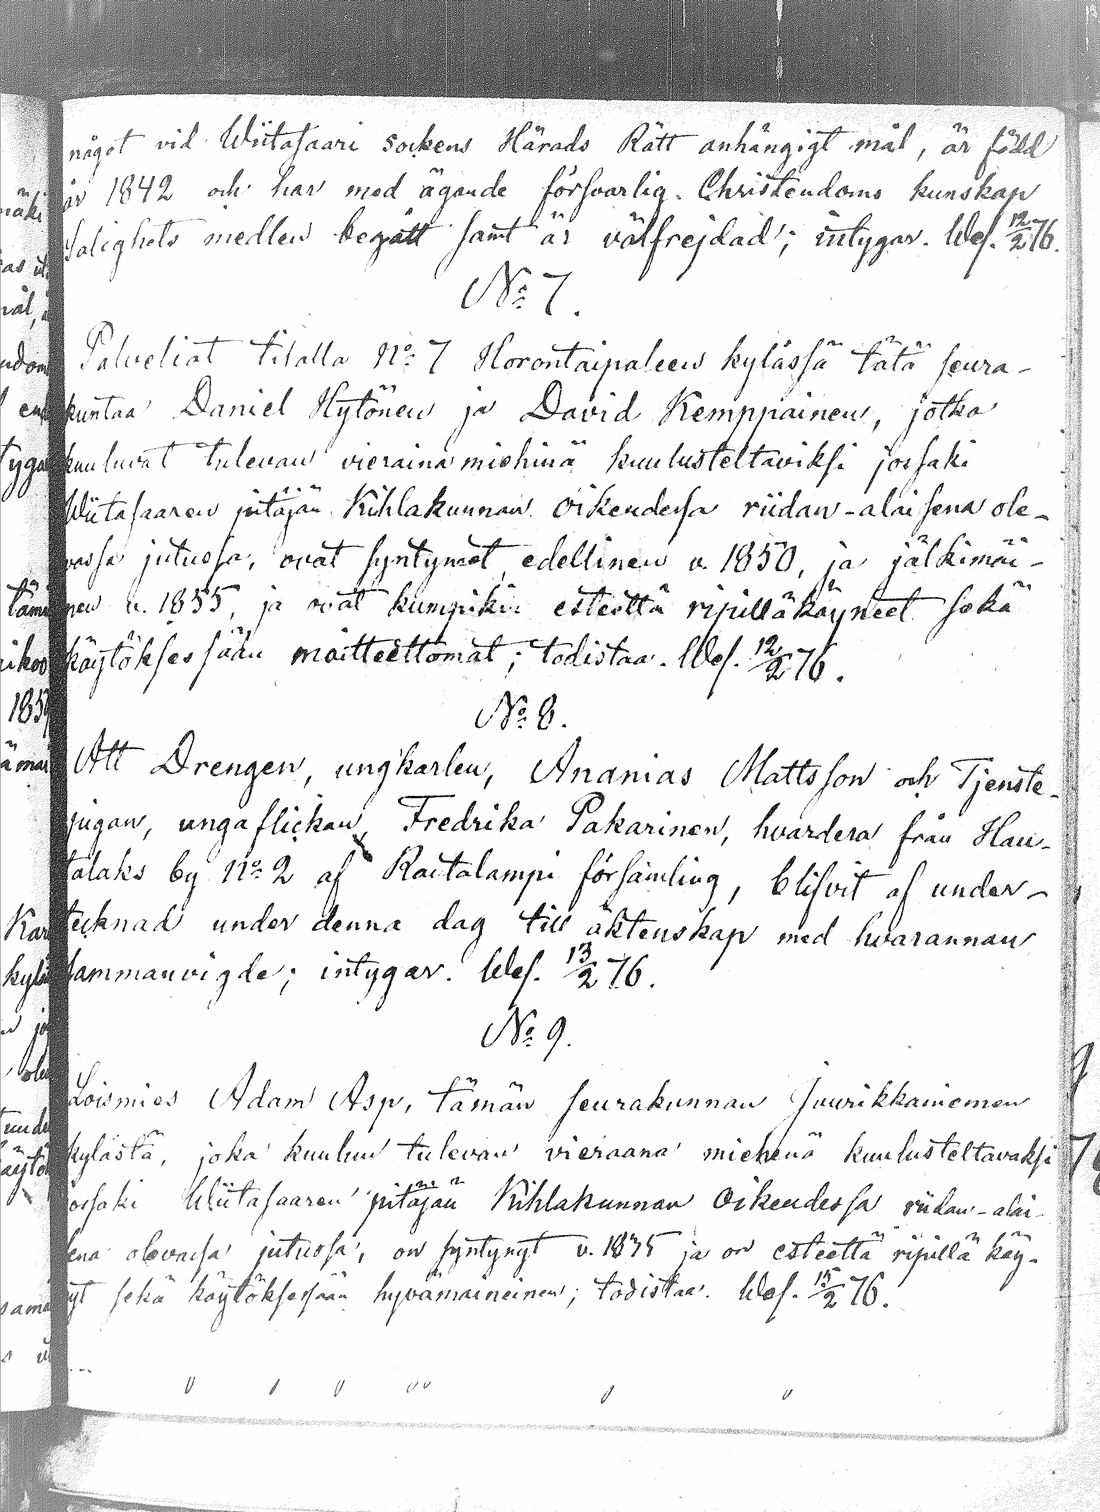 något vid Wiitasaari sockens Härads Rätt anhängigt mål, är född
år 1842 och har med ägande försvarlig Christendoms kunskap
Salighets medlen begått samt är välfrejdad; intygar. Wes. 12/2 76.
No 7.
Palveliat tilalla No 7 Horontaipaleen kylässä tätä seura-
kuntaa Daniel Hytönen ja David Kemppainen, jotka
kuuluvat tulevan vieraina miehinä kuulusteltaviksi jossaki
Wiitasaaren pitäjän Kihlakunnan Oikeudessa riidan-alaisena ole-
vassa jutussa, ovat syntyneet, edellinen v. 1850, ja jälkimäi-
nen v. 1855, ja ovat kumpikin esteettä ripilläkäyneet sekä
käytöksessään moitteettomat; todistaa. Wes. 12/2 76.
No 8.
Att Drengen, ungkarlen, Ananias Mattsson och Tjenste-
pigan, unga flickan, Fredrika Pakarinen, hvardera från Hau-
talaks by No 2 af Rautalampi församling, blifvit af under-
tecknad under denna dag till äktenskap med hvarannan
sammanvigde; intygar. Wes. 13/2 76.
No 9.
Loismies Adam Asp, tämän seurakunnan Juurikkaniemen
kylästä, joka kuuluu tulevan vieraana miehenä kuulusteltavaksi
jossaki Wiitasaaren pitäjän Kihlakunnan Oikeudessa riidan-alai-
sena olevassa jutussa, on syntynyt v. 1835 ja on esteettä ripillä käy-
nyt sekä käytöksessään hyvämaineinen; todistaa. Wes. 15/2 76.